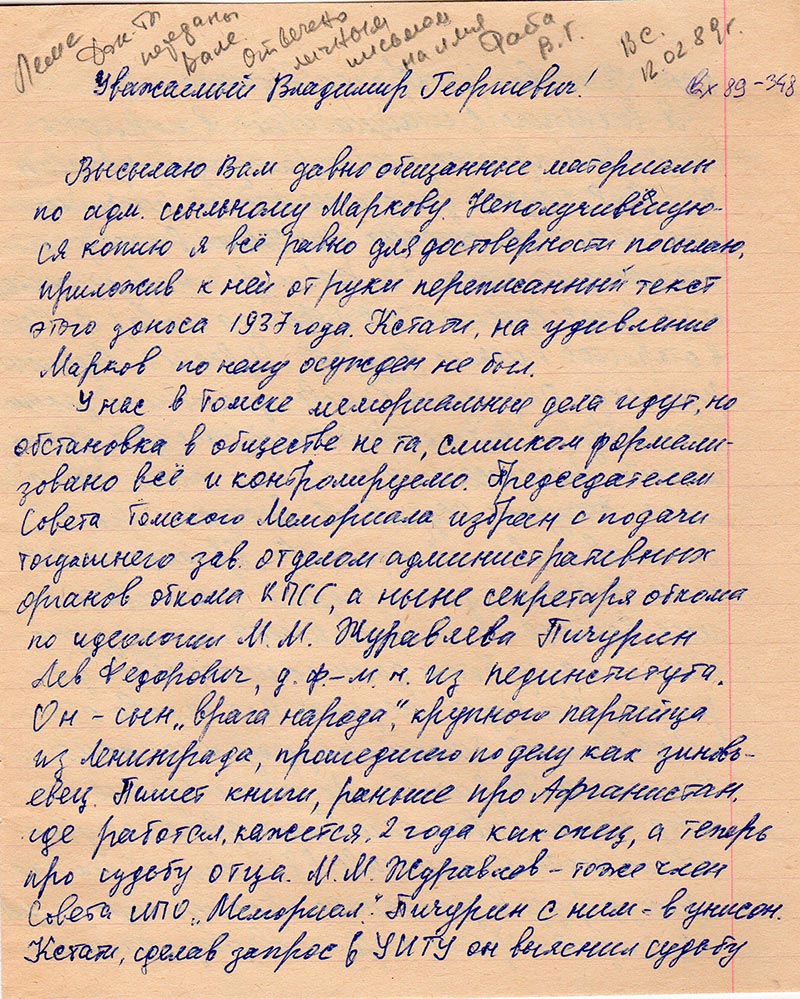 Док-ты
переданы
Вале.
Отвечено
личным
письмом
на имя
Фаста
В.Г.
ВС.
12.02.89г.
Вх 89-348
Уважаемый Владимир Георгиевич!
Высылаю Вам давно обещанные материалы
по адм. ссыльному Маркову. Неполучившую-
ся копию я всё равно для достоверности посылаю,
приложив к ней от руки переписанный текст
этого доноса 1937 года. Кстати, на удивление
Марков по нему осужден не был.
У нас в Томске мемориальные дела идут, но
обстановка в обществе не та, слишком формали-
зовано всё и контролируемо. Председателем
Совета Томского Мемориала избран с подачи
тогдашнего зав. отделом административных
органов обкома КПСС, а ныне секретаря обкома
по идеологии М.М. Журавлева Пичурин
Лев Федорович, д.ф-м.н. из пединститута.
Он - сын „врага народа", крупного партийца
из Ленинграда, прошедшего по делу как зиновь-
евец. Пишет книги, раньше про Афганистан,
где работал, кажется, 2 года как спец, а теперь
про судьбу отца. М.М. Журавлев - тоже член
Совета ИПО „Мемориал". Пичурин с ним - в унисон.
Кстати, сделав запрос в УИТУ он выяснил судьбу